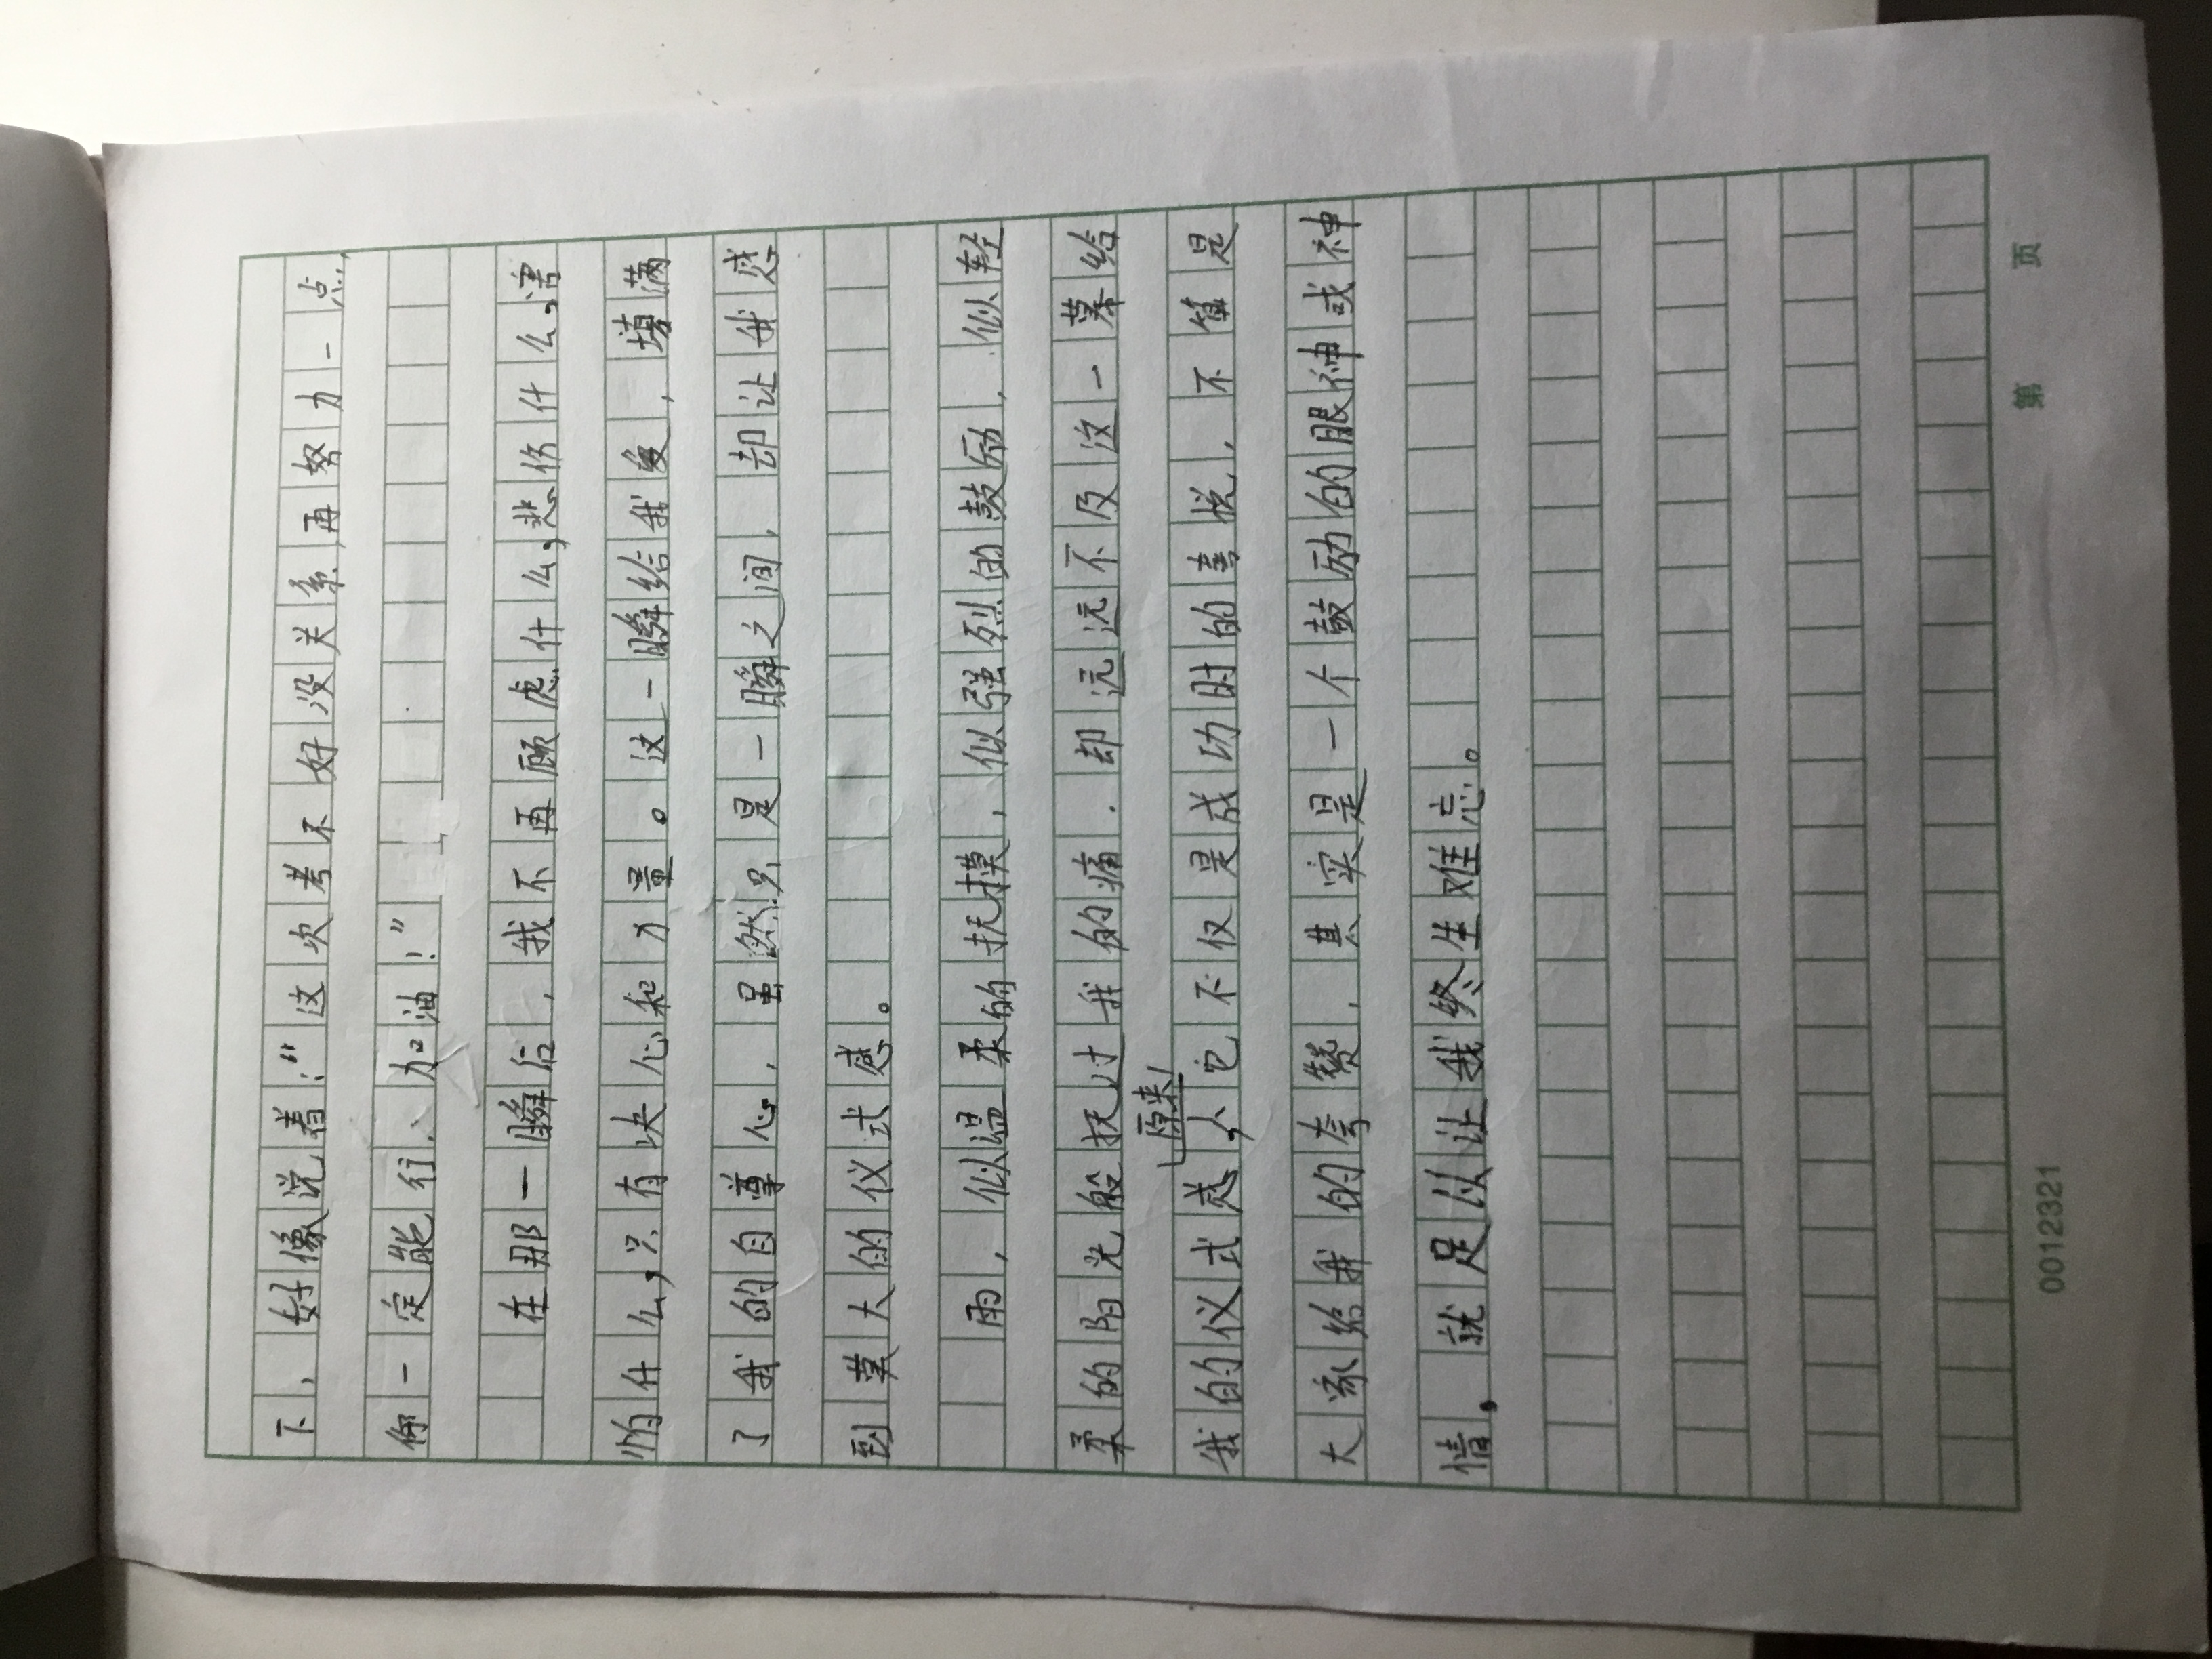 下，好像说着：“这次考不好没关系，再努力一点，
你一定能行，加油！”
在那一瞬后，我不再顾虑什么，悲伤什么，害
怕什么，只有决心和力量。这一瞬给我爱，填满
了我的自尊心，虽然只是一瞬之间，却让我感
到莫大的仪式感。
雨，似温柔的抚摸，似强烈的鼓励，似轻
柔的阳光般抚过我的痛，却远远不及这一幕给
原来
我的仪式感，它不仅是成功时的喜悦，不值是
大家给我的夸赞，其实是一个鼓励的眼神或神
情，就足以让我终生难忘。
第 页
0012321